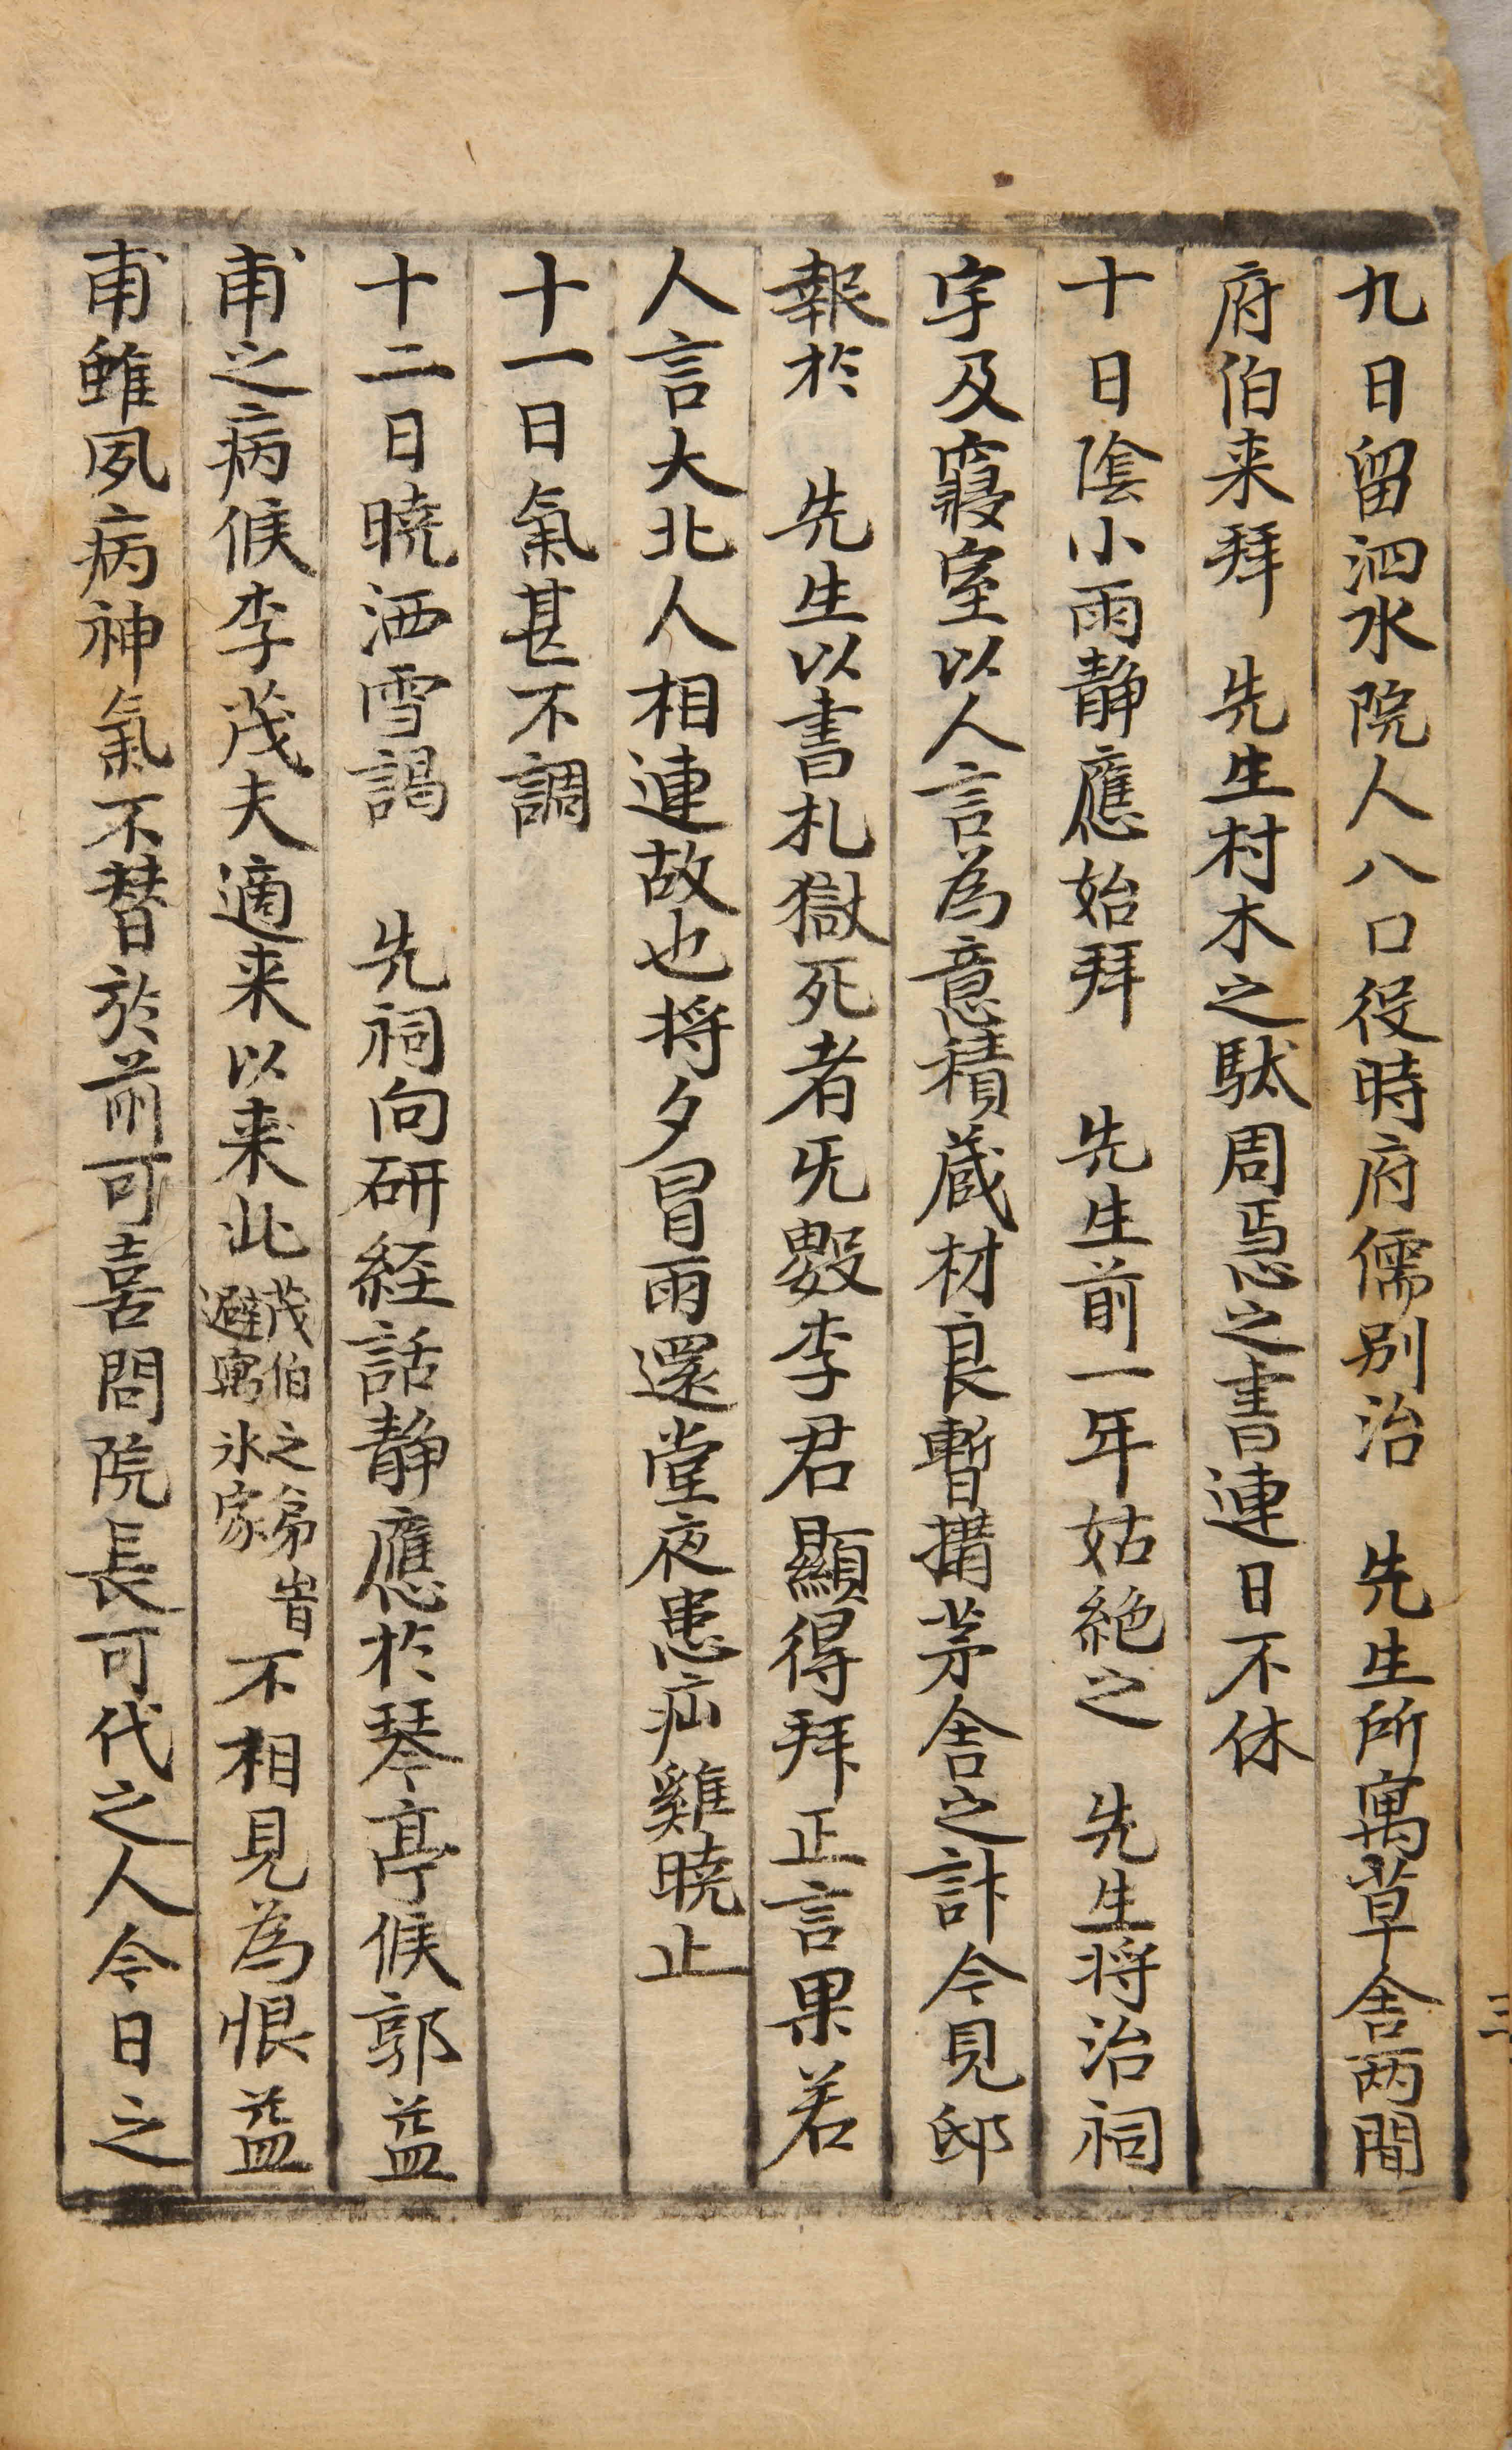 九日留泗水院人八口役時府儒別治 先生所寓草舍两間
府伯来拜 先生村木之馱周焉之書連日不休
十日陰小雨静應始拜 先生前一年姑絶之 先生将治祠
宇及寢室以人言為意積蔵材良暫搆茅舍之計今見邸
報於 先生以書札獄死者旣數李君顯得拜正言果若
人言大北人相連故也将夕冒雨還堂夜患疝雞曉止
十一日氣甚不調
十二日曉洒雪謁 先祠向研経話静應於琴亭候郭益
甫之病候李茂夫適来以来此茂伯之弟峕避寓氷家不相見為恨益
甫雖夙病神氣不替於前可喜問院長可代之人今日之
三